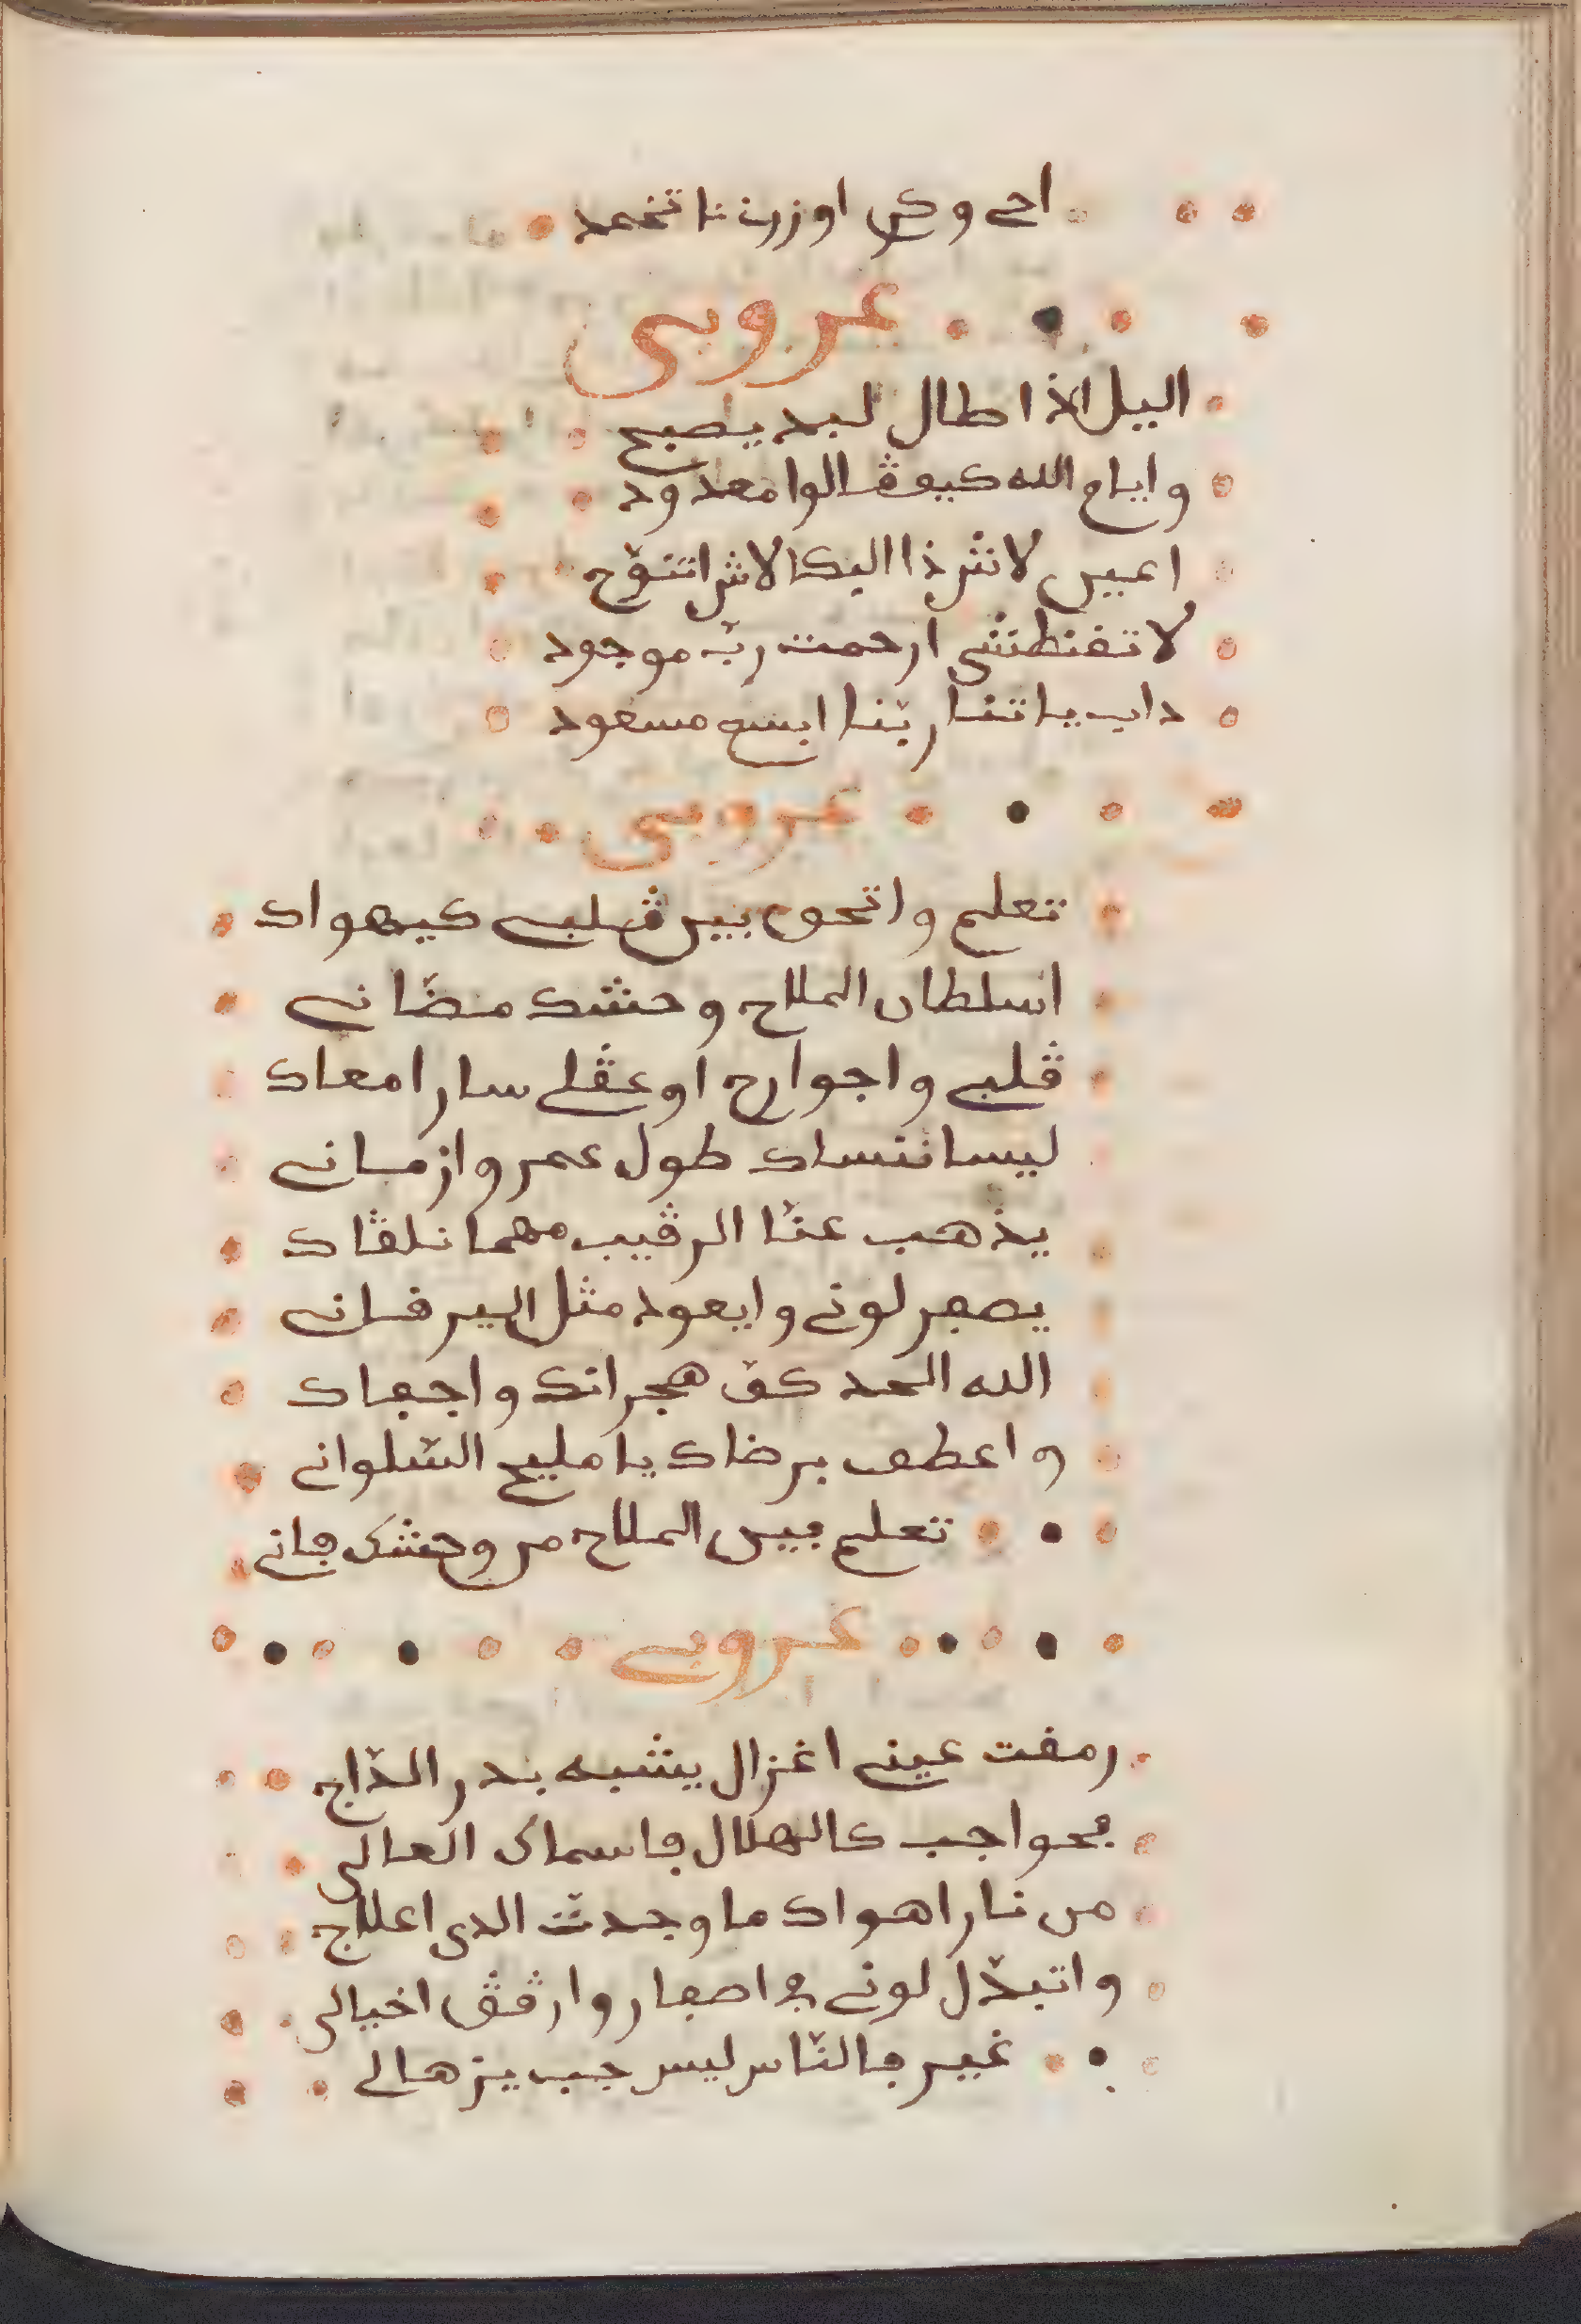 احى وكن اوزرنا تخمد
عروبى
اليل اذا طال لبد يصبح
وايام الله كيف قالوا معدود
اعيين لانش ذا البكا لاش اتنوّح
لا تقنطشى ارحمت ربّ موجود
داب ياتنا ربّنا ابسع مسعود
عروبى
تعلم واتحق بين قلبى كيهواك
اسلطان الملاح وحشك مضّانى
قلبى واجوارح اوعقلى سارا معاك
ليسا ننساك طول عمر وازمانى
يذهب عنّا الرقيب مهما نلقاك
يصفر لونى وايعود مثل اليرقانى
الله احمد كفّ هجرانك واجفاك
واعطف برضاك يا مليح السّلوانى
تعلم بين الملاح من وحشك فانى
عروبى
رمقت عينى اغزال يشبه بدر الدّاج
بحواجب كالهلال فاسماك العالى
من نار اهواك ما وجدتّ الدى اعلاج
واتبدّل لونى فى اصفار وارقق اخيالى
غير فالنّاس ليس جيب يزهالى